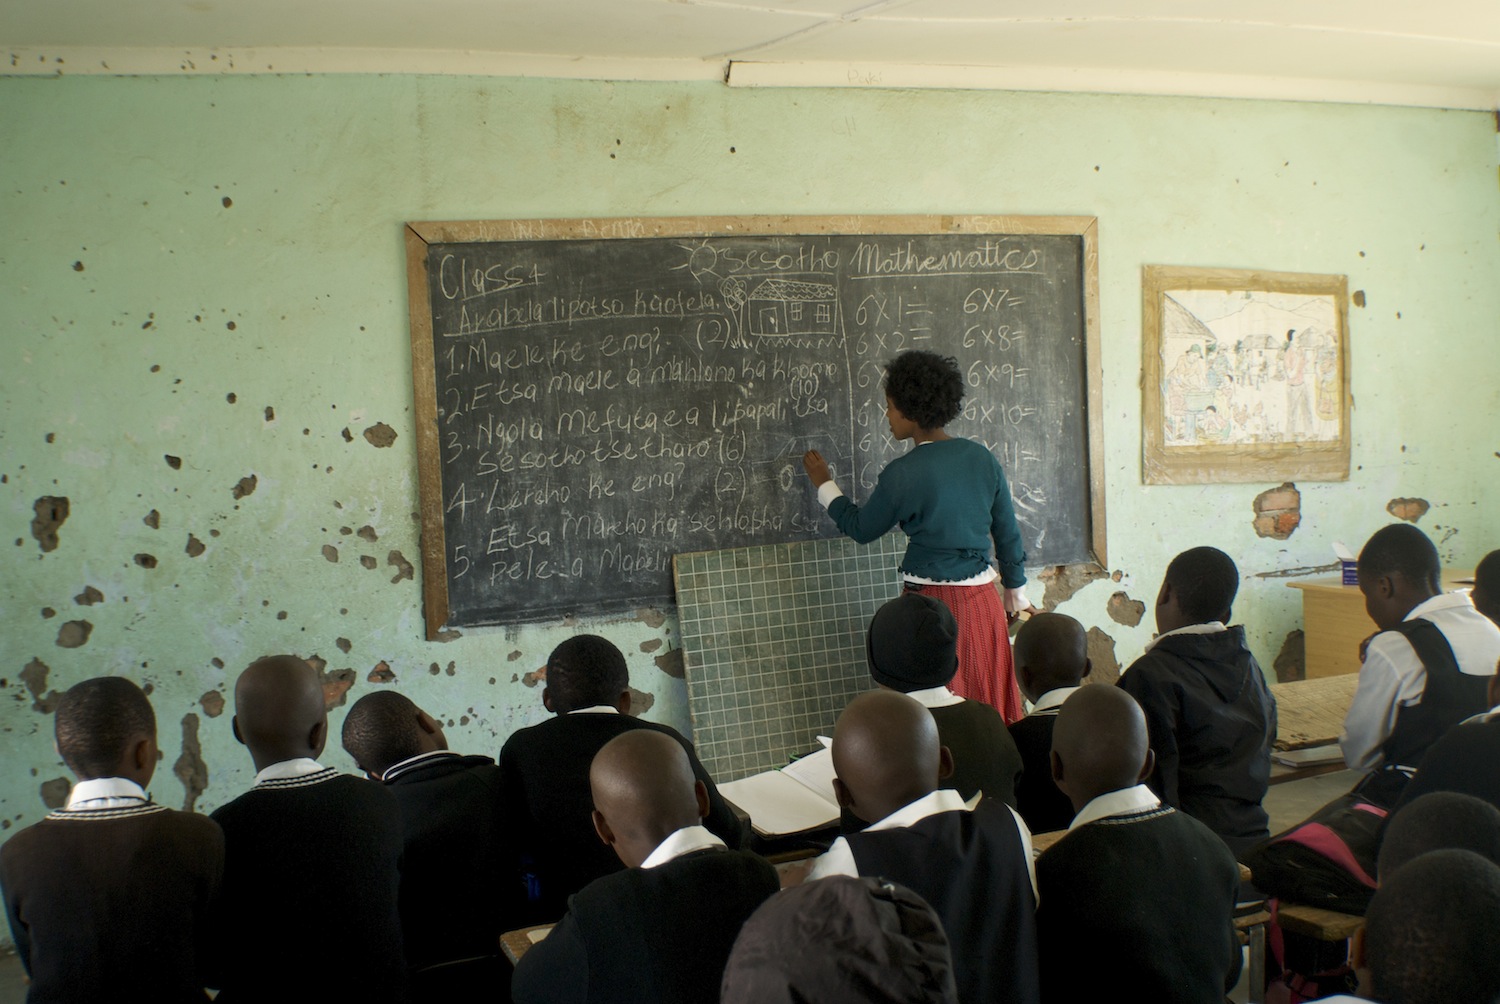 Class 4
Sesotho
Arabela lipotso kaofela.
1. Maele ke eng? (2)
2. Etsa maele a mahlano ka khomo
(10)
3. Ngola mefuta ea lipapali tsa
Sesotho tse tharo (6)
4. Lereho ke eng? (2)
5. Etsa mareho ka sehlopha sa
pele
Mathematics
6X1=
6X2=
6X7=
6X8=
6X9=
6X10=